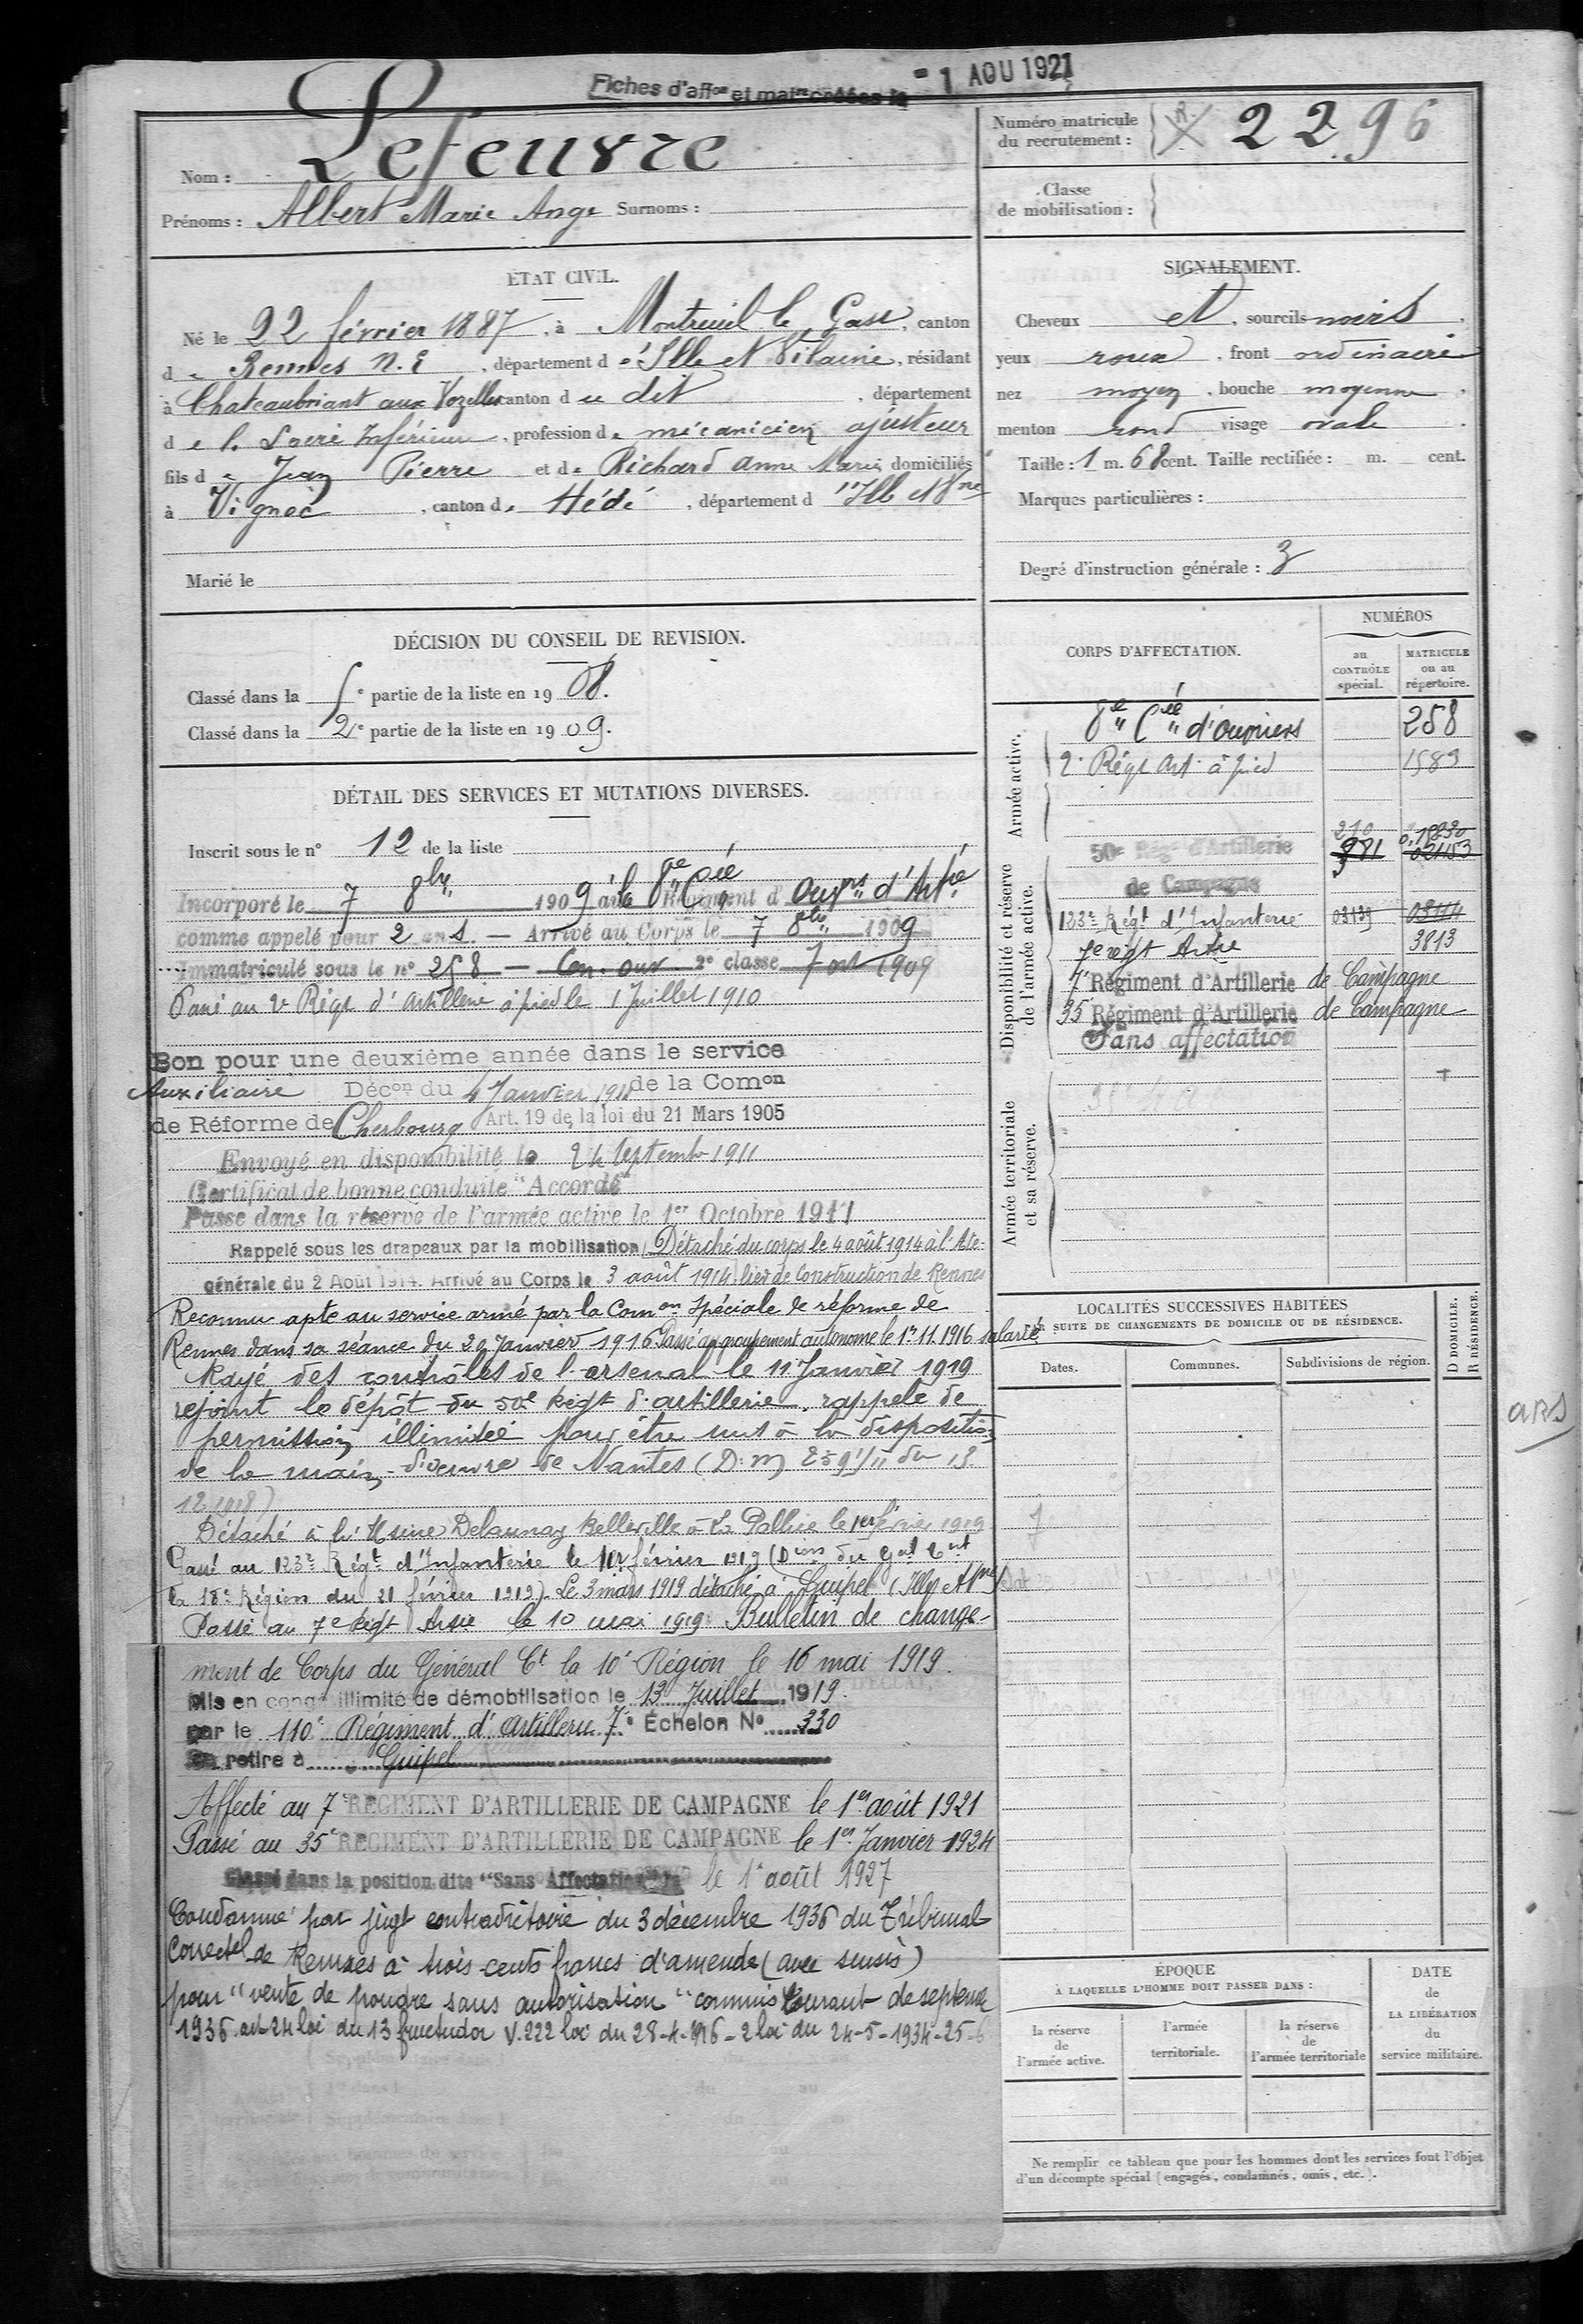 Fiches d'aff<sup>on</sup> et mat<sup>re</sup> créées le - 1 AOU 1921
Nom : Lefeuvre
Prénoms : Albert Marie Ange Surnoms :
Numéro matricule du recrutement : 2296
Classe de mobilisation :
ÉTAT CIVIL.
Né le 22 février 1887, à Montreuil le Gast, canton
de Rennes N. E, département d'Ille et Vilaine, résidant
à Chateaubriant aux Vozelles canton du dit, département
de la Loire Inférieure, profession de mécanicien ajusteur
fils de Jean Pierre et de Richard Anne Marie domiciliés
à Vignoc, canton de Hédé, département d'Ille et Vne
Marié le
SIGNALEMENT.
Cheveux et, sourcils noirs,
yeux roux, front ordinaire
nez moyen, bouche moyenne,
menton rond visage ovale.
Taille : 1 m. 68 cent. Taille rectifiée : m. cent.
Marques particulières :
Degré d'instruction générale : 3
DÉCISION DU CONSEIL DE REVISION.
Classé dans la 5e partie de la liste en 1908.
Classé dans la 2e partie de la liste en 1909.
DÉTAIL DES SERVICES ET MUTATIONS DIVERSES.
Inscrit sous le n° 12 de la liste
Incorporé le 7 8bre 1909 à la 8e Cie Régiment d'Ouvrs d'Artie
comme appelé pour 2 ans — Arrivé au Corps le 7 8bre 1909
Immatriculé sous le n° 258 — Can. ouv. 2e classe 7 oct 1909
Passé au 2e Régt d'Artillerie à pied le 1 Juillet 1910
Bon pour une deuxième année dans le service
Auxiliaire Décon du 4 Janvier 1911 de la Comon
de Réforme de Cherbourg Art. 19 de la loi du 21 Mars 1905
Envoyé en disponibilité le 24 Septembre 1911
Certificat de bonne conduite "Accordé"
Passé dans la réserve de l'armée active le 1er Octobre 1911
Rappelé sous les drapeaux par la mobilisation Détaché du corps le 4 août 1914 à l'Ate-
générale du 2 Août 1914. Arrivé au Corps le 3 août 1914 lier de Construction de Rennes
Reconnu apte au service armé par la Comon Spéciale de réforme de
Rennes dans sa séance du 20 Janvier 1916 Passé au groupement autonome le 1r.11.1916 salarié
Rayé des contrôles de l'arsenal le 11 Janvier 1919
rejoint le dépôt du 50e Régt d'artillerie, rappelé de
permission illimitée pour être mis à la disposition
de la main-d'oeuvre de Nantes (D.M 2591/11 du 13.
12.1918)
Détaché à l'Usine Delaunay Belleville à La Pallice le 1er février 1919
Passé au 123e Régt d'Infanterie le 1er février 1919 (Dion du Gal Ct
la 18e Région du 21 février 1919). Le 3 mars 1919 détaché à Guipel (Ille et Vne)
Passé au 7e Régt Artie le 10 mai 1919. Bulletin de change-
ment de Corps du Général Ct la 10e Région le 16 mai 1919.
Mis en congé illimité de démobilisation le 13 Juillet 1919.
par le 110e Régiment d'Artillerie 7e Échelon N° 330
Se retire à Guipel
Affecté au 7e RÉGIMENT D'ARTILLERIE DE CAMPAGNE le 1er août 1921
Passé au 35e RÉGIMENT D'ARTILLERIE DE CAMPAGNE le 1er Janvier 1924
Classé dans la position dite "Sans Affectation" le 1r août 1927
Condamné par jugt contradictoire du 3 décembre 1936 du Tribunal
Correctel de Rennes à trois cents francs d'amende (avec sursis)
pour "vente de poudre sans autorisation" commis Courant de septembre
1936. art 24 loi du 13 fructidor V. 222 loi du 28-4-1816 - 2 loi du 24-5-1934-25-6
CORPS D'AFFECTATION.
NUMÉROS
au CONTRÔLE spécial.
MATRICULE ou au répertoire.
Armée active.
8e Cie d'ouvriers 258
2e Régt Art. à pied 1589
Disponibilité et réserve de l'armée active.
50e Rég. d'Artillerie 210
de Campagne 981 02453
123e Régt d'Infanterie 03139 03144
7e régt Artie 3813
7e Régiment d'Artillerie de Campagne
35 Régiment d'Artillerie de Campagne
Sans affectation
Armée territoriale et sa réserve.
LOCALITÉS SUCCESSIVES HABITÉES
PAR SUITE DE CHANGEMENTS DE DOMICILE OU DE RÉSIDENCE.
Dates. Communes. Subdivisions de région. D DOMICILE. R RÉSIDENCE.
ars
ÉPOQUE
À LAQUELLE L'HOMME DOIT PASSER DANS :
la réserve de l'armée active.
l'armée territoriale.
la réserve de l'armée territoriale
DATE de LA LIBÉRATION du service militaire.
Ne remplir ce tableau que pour les hommes dont les services font l'objet
d'un décompte spécial (engagés, condamnés, omis, etc.).